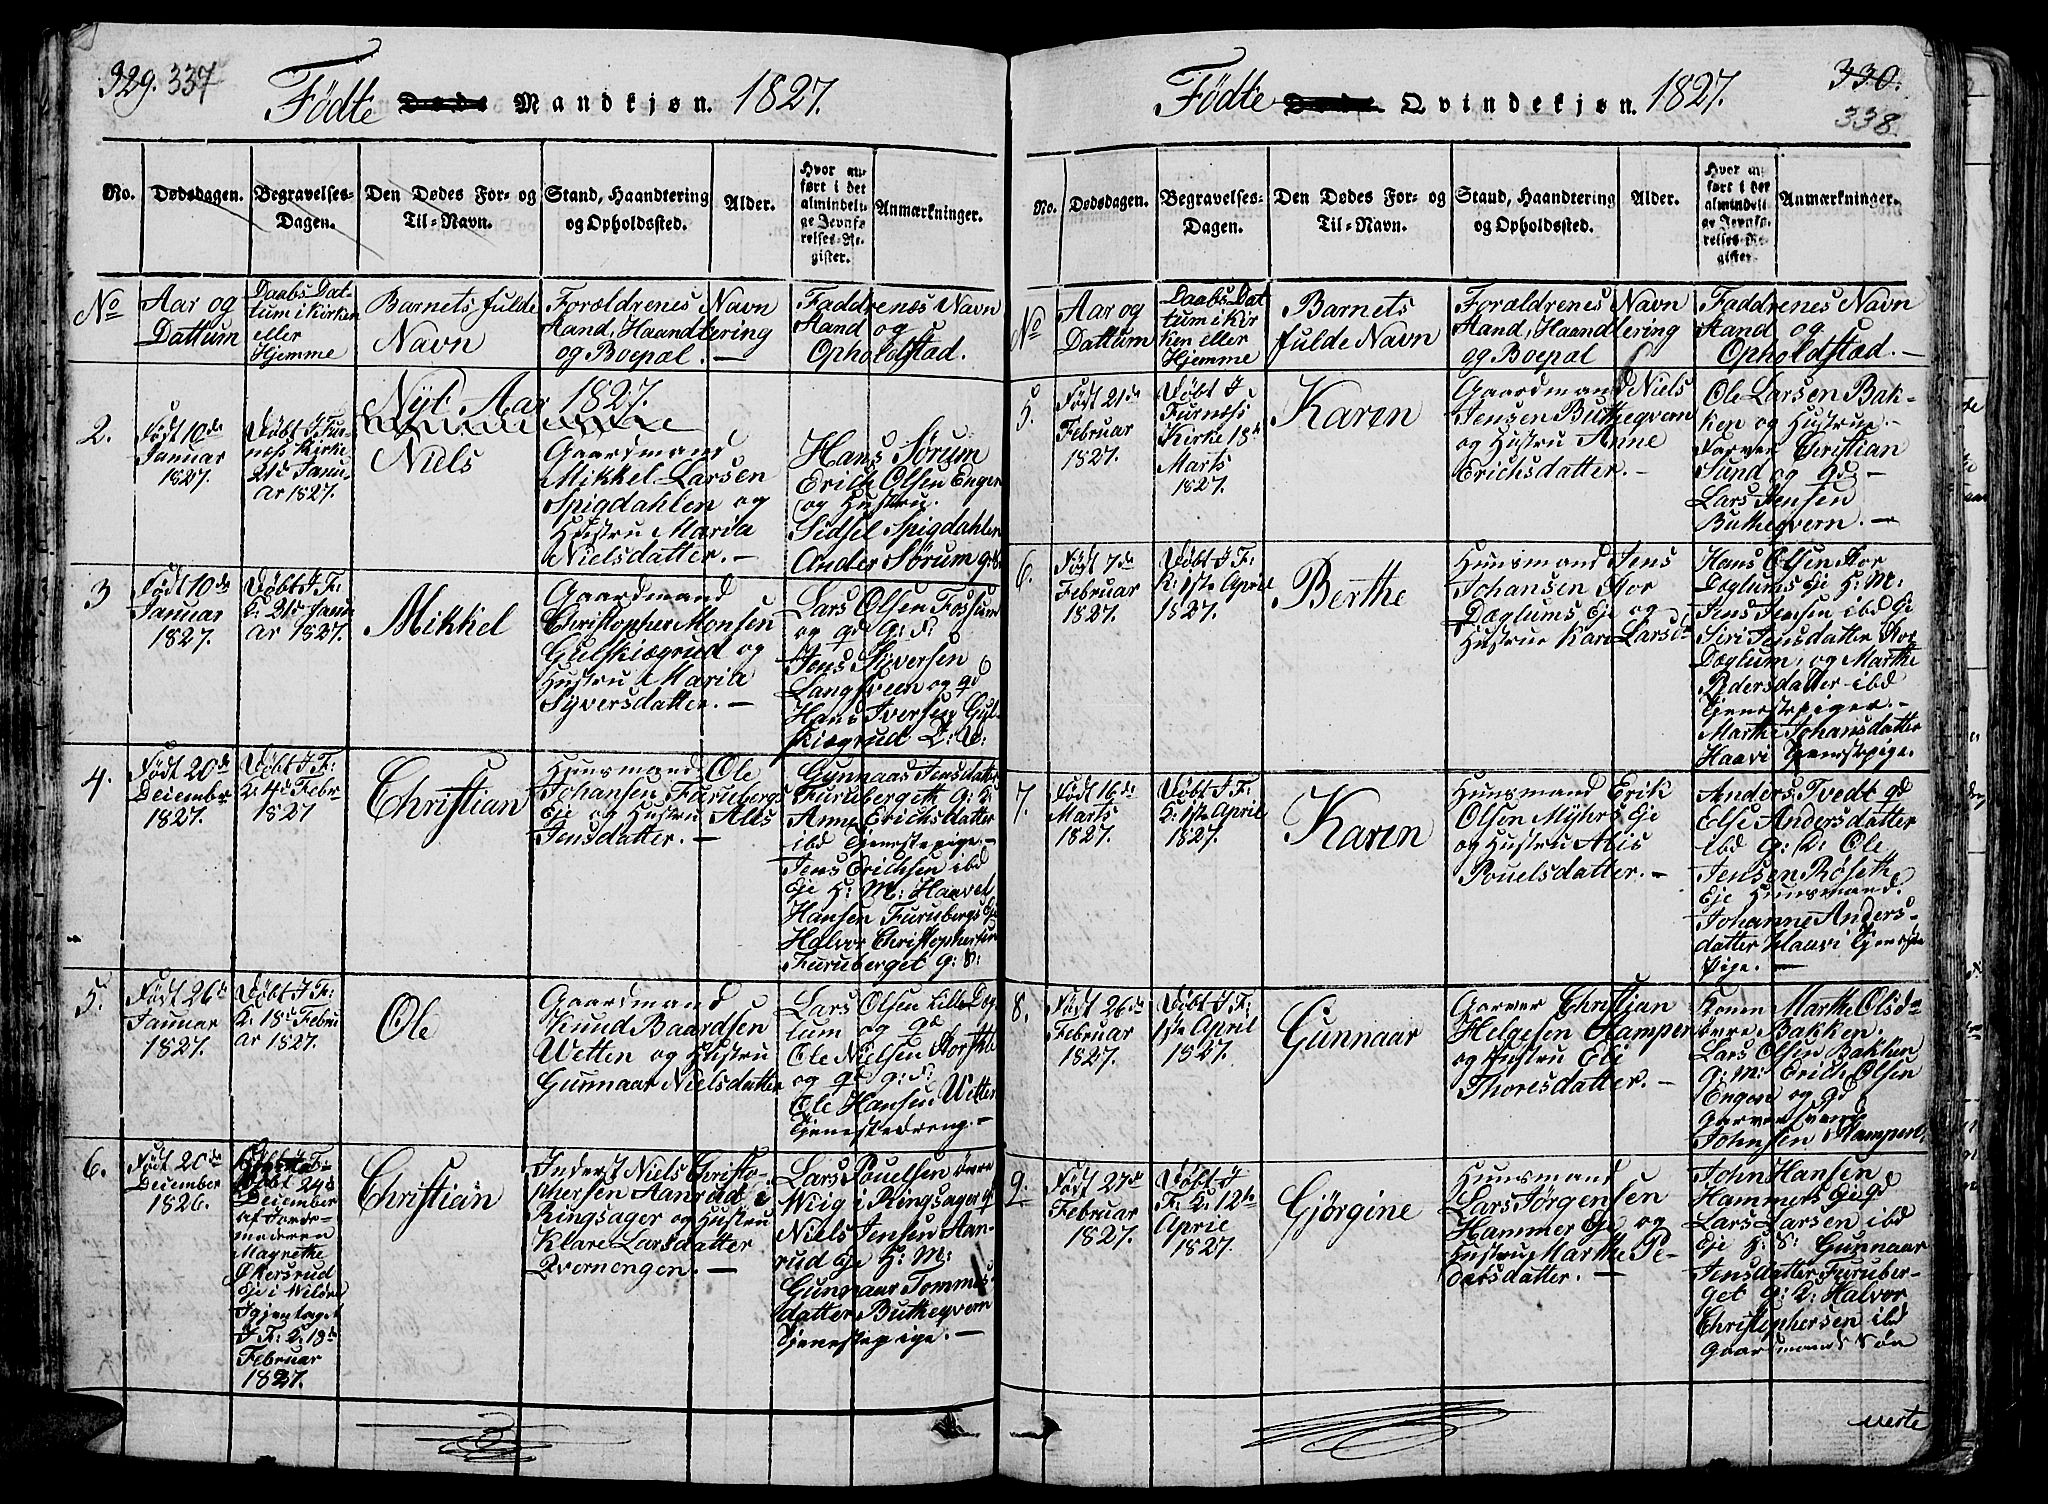 329. 337
Födte Døde Mandkjøn. 1827.
No.
Dødsdagen.
Begravelses-
Dagen.
Den Dødes For- og
Til-Navn.
Stand, Haandtering
og Opholdssted.
Alder.
Hvor an-
ført i det
almindeli-
ge Jevnfø-
relses-Re-
gister.
Anmærkninger.
No
Aar og
Dattum
Daabs Dat-
tum i Kirken
eller
Hjemme
Barnets fulde
Navn
Forældrenes Navn
Stand, Haandtering
og Boepæl. —
Faddrenes Navn
Stand og
Opholdstæd.
Nyt Aar 1827.
2.
Født 10de
Januar
1827.
Døbt I Fur-
næs Kirke
21d Janu-
ar 1827.
Niels
Gaardmand
Mikkel Larsen
Spigdahlen og
Hustru Maria
Nielsdatter. —
Hans Sørum
Erich Olsen Enger
og Hustru.
Sidsel Spigdahlen
Ander Sørum g: S:
3
Født 10de
Januar
1827.
Døbt I F:
K: 21d Janu
ar 1827.
Mikkel
Gaardmand
Christopher Monsen
Gulskiægrud og
Hustru Maria
Syversdatter. —
Lars Olsen Fossum
og gd G: S:
Jens Syversen
Langsveen og gd
Hans Iversen Gul-
skiægrud
4.
Født 20de
Decembr
1827.
Døbt I F:
K: 4d Febr
1827
Christian
Huusmand Ole
Johansen Furubergs
Eje og Hustru Alis
Jensdatter. —
Gunnaas Jensdatter
Furubergeth G: K:
Anne Erichsdatter
ibd Tjenestepige. —
Jens Erichsen ibd
Eje H: M: Haavel
Hansen Furubergs Ej
Halvor Christophersen
Furuberget G: S:
5.
Født 26d
Januar
1827.
Døbt I F:
K: 18d Febru
ar 1827.
Ole
Gaardmand
Knud Baardsen
Wetten og Hustru
Gunnaar Nielsdatter
Lars Olsen Lille Dog-
lum og gd
Ole Nielsen
og gd g: S:
Ole Hansen Witten
Tjenestedreng. —
6.
Født 20de
December
1826.
Døbt 24d
December
af Jorde-
moderen
Magrethe
Økersrud
Eje i Weldre
Igjentaget
I F: K: 18d
Februar
1827.
Christian
Inderst Niels Christo-
phersen Aanrud i
Ringsager og Hustru
Klare Larsdatter
Qvernengen. —
Lars Pouelsen øvre
Wiig i Ringsager gd
Niels Jensen Aan-
rud Eje H: M:
Gunnaar Tommes
datter Buthegvern
Tjenestepige. —
330.
338.
Födte Døde Qvindekjøn. 1827.
No.
Dødsdagen.
Begravelses-
Dagen.
Den Dødes For- og
Til-Navn.
Stand, Haandtering
og Opholdssted.
Alder.
Hvor an-
ført i det
almindeli-
ge Jevnfø-
relses-Re-
gister.
Anmærkninger.
No
Aar og
Dattum
Daabs Dat
tum i Kir
ken eller
Hjemme
Barnets
fulde Navn
Forældrenes Navn
Stand, Haandtering
og Boepæl
Faddrenes Navn
Stand og
Opholdstæd. —
5.
Født 21de
Februar
1827.
Døbt I
Furnæs
Kirke 18d
Marts
1827.
Karen
Gaardmand Niels
Jensen Buthegvern
og Hustru Anne
Erichsdatter. —
Ole Larsen Bak-
ken og Hustrue. —
Farver Christian
Sund og gd —
Lars Jensen
Buthegvern. —
6.
Født 7de
Februar
1827.
Døbt I F:
K: 1ste April
1827.
Berthe
Huusmand Jens
Johansen Stor
Døglums Eje og
Hustrue Kari Larsd
Hans Olsen Stor
Døglums Eje H: M:
Jens Jensen ibd Ei
Siri Jensdatter Stor
Døglum, og Marthe
Pedersdatter ibd
Tjenestepiger. —
Marthe Johansdatter
Haavi Tjenestpige. —
7.
Født 16de
Marts
1827.
Døbt I F:
K: 1ste April
1827.
Karen
Huusmand Erik
Olsen Myhrs Eje
og Hustru Alis
Pouelsdatter. —
Anders Tvedt gd
Else Andersdatter
ibd g: K: Ole
Jensen Røseth
Eje Huusmand.
Johanne Anders-
datter Haavi Tjeneste
Pige. —
8.
Født 26de
Februar
1827.
Døbt I F:
1ste April
1827.
Gunnaar
Garver Christian
Helgesen Stamperi
og Hustru Eli
Thoresdatter. —
Konen Marthe Olsda
Bakken.
Lars Olsen Bakken
G: M: Erich Olsen
Engen og gd
Garversvend
Johnsen Stamperi
9.
Født 27de
Februar
1827.
Døbt I
F: K: 12te
Aprie
1827.
Gjörgine
Huusmand
Lars Jørgensen
Hammer Eje og
Hustru Marthe Pe-
dersdatter. —
John Hansen
Hammers Eje gd
Lars Larsen ibd
Eje H: S: Gunnaar
Jensdatter Furuber-
get G: K: Halvor
Christophersen ibd
Gaardmands Søn
verte